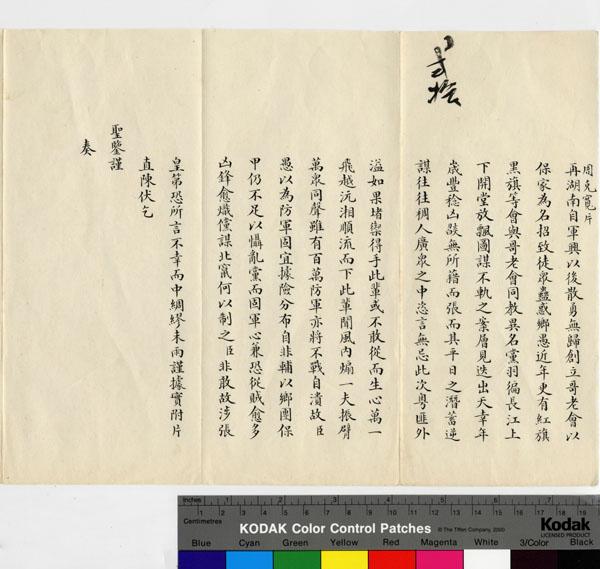 貳拾
周克寬片
再湖南自軍興以後散勇無歸創立哥老會以
保家為名招致徒眾蠱惑鄉愚近年更有紅旗
黑旗等會與哥老會同教異名黨羽徧長江上
下開堂放飄圖謀不軌之案層見迭出天幸年
歲豐稔凶燄無所藉而張而其平日之潛蓄逆
謀往往稠人廣眾之中恣言無忌此次粵匪外
溢如果堵禦得手此輩或不敢從而生心萬一
飛越沅湘順流而下此輩聞風內煽一夫振臂
萬眾同聲雖有百萬防軍亦將不戰自潰故臣
愚以為防軍固宜據險分布自非輔以鄉團保
甲仍不足以懾亂黨而固軍心兼恐從賊愈多
凶鋒愈熾儻謀北竄何以制之臣非敢故涉張
皇第恐所言不幸而中綢繆未雨謹據實附片
直陳伏乞
聖鑒謹
奏
Inches 1 2 3 4 5 6 7 8
Centimetres 1 2 3 4 5 6 7 8 9 10 11 12 13 14 15 16 17 18 19
KODAK Color Control Patches
© The Tiffen Company, 2000
Kodak
LICENSED PRODUCT
Blue Cyan Green Yellow Red Magenta White 3/Color Black